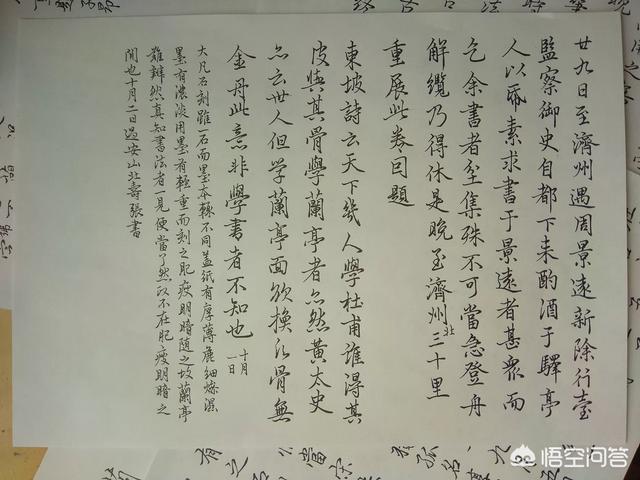 廿九日至濟州遇周景遠新除行臺
監察御史自都下来酌酒于驛亭
人以帋素求書于景遠者甚衆而
乞余書者坌集殊不可當急登舟
解纜乃得休是晚至濟州北三十里
重展此卷因題
東坡詩云天下幾人學杜甫誰得其
皮與其骨學蘭亭者亦然黃太史
亦云世人但学蘭亭面欲换凡骨無
金丹此意非學書者不知也 十月一日
大凡石刻雖一石而墨本輒不同盖紙有厚薄麁細燥濕
墨有濃淡用墨有輕重而刻之肥瘦明暗隨之故蘭亭
難辨然真知書法者一見便當了然政不在肥瘦明暗之
間也十月二日過安山北壽張書
悟空问答